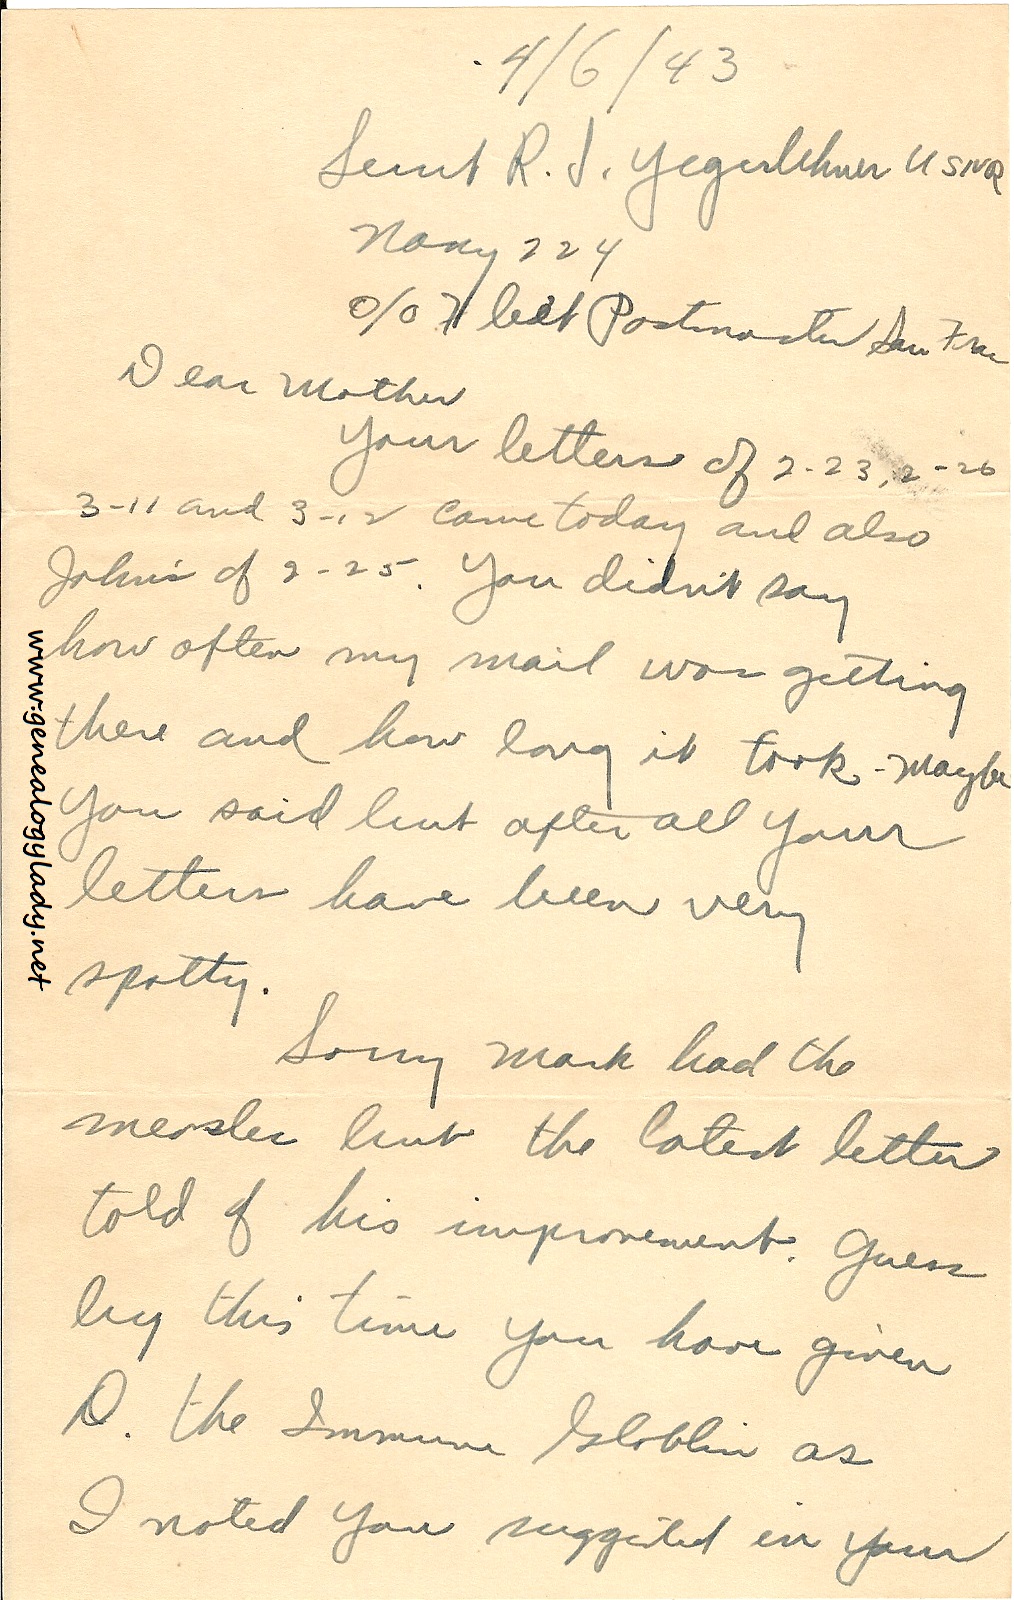 4/6/43
Lieut R. J. Yegerlehner USNR
Navy 224
c/o Fleet Postmaster San Fran
Dear Mother
Your letters of 2-23, 2-26
3-11 and 3-12 came today and also
John's of 2-25. You didn't say
how often my mail was getting
there and how long it took - Maybe
you said but after all your
letters have been very
spotty.
Sorry Mark had the
measles but the latest letter
told of his improvement. Guess
by this time you have given
D. the Immune Globlin as
I noted you suggested in your
www.genealogylady.net